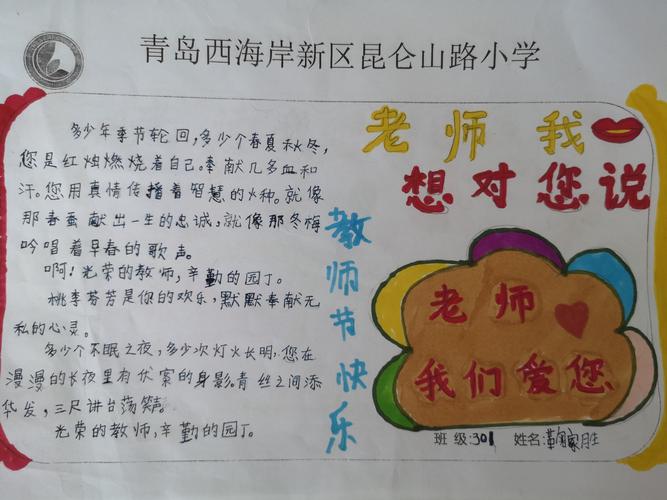 青岛西海岸新区昆仑山路小学
多少年季节轮回,多少个春夏秋冬,
您是红烛燃烧着自己。奉献几多血和
汗。您用真情传播着智慧的火种。就像
那春蚕献出一生的忠诚,就像那冬梅
吟唱着早春的歌声。
啊!光荣的教师,辛勤的园丁。
桃李芬芳是你的欢乐,默默奉献无
私的心灵。
多少个不眠之夜,多少次灯火长明,您在
漫漫的长夜里有伏案的身影。青丝之间添
华发,三尺讲台荡笑声。
光荣的教师,辛勤的园丁。
教师节快乐
老师我
想对您说
老师
我们爱您
班级:301 姓名: